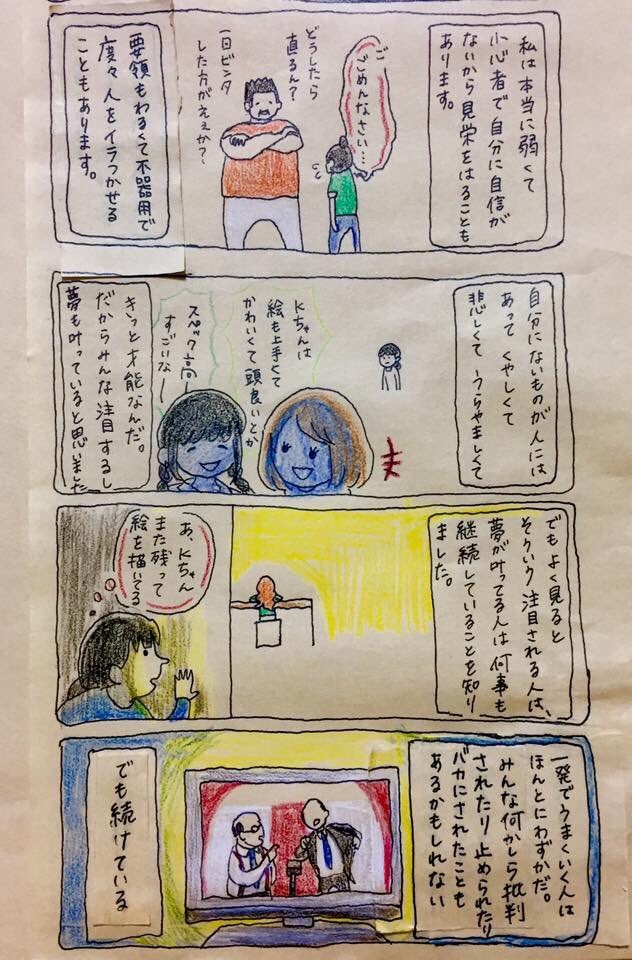 私は本当に弱くて
小心者で自分に自信が
ないから見栄をはることも
あります。
ご
ごめんなさい…
どうしたら
直るん?
一回ビンタ
した方がええか?
要領もわるくて不器用で
度々人をイラつかせる
こともあります。
自分にないものが人には
あってくやしくて
悲しくてうらやましくて
Kちゃんは
絵も上手くて
かわいくて頭良いとか
スペック高ー
すごいなー
きっと才能なんだ。
だからみんな注目するし
夢も叶っていると思いました
でもよく見ると
そういう注目される人は、
夢が叶ってる人は何事も
継続していることを知り
ました。
あ、Kちゃん
また残って
絵を描いてる
一発でうまくいくんは
ほんとにわずかだ。
みんな何かしら批判
されたり止められたり
バカにされたことも
あるかもしれない
でも続けている